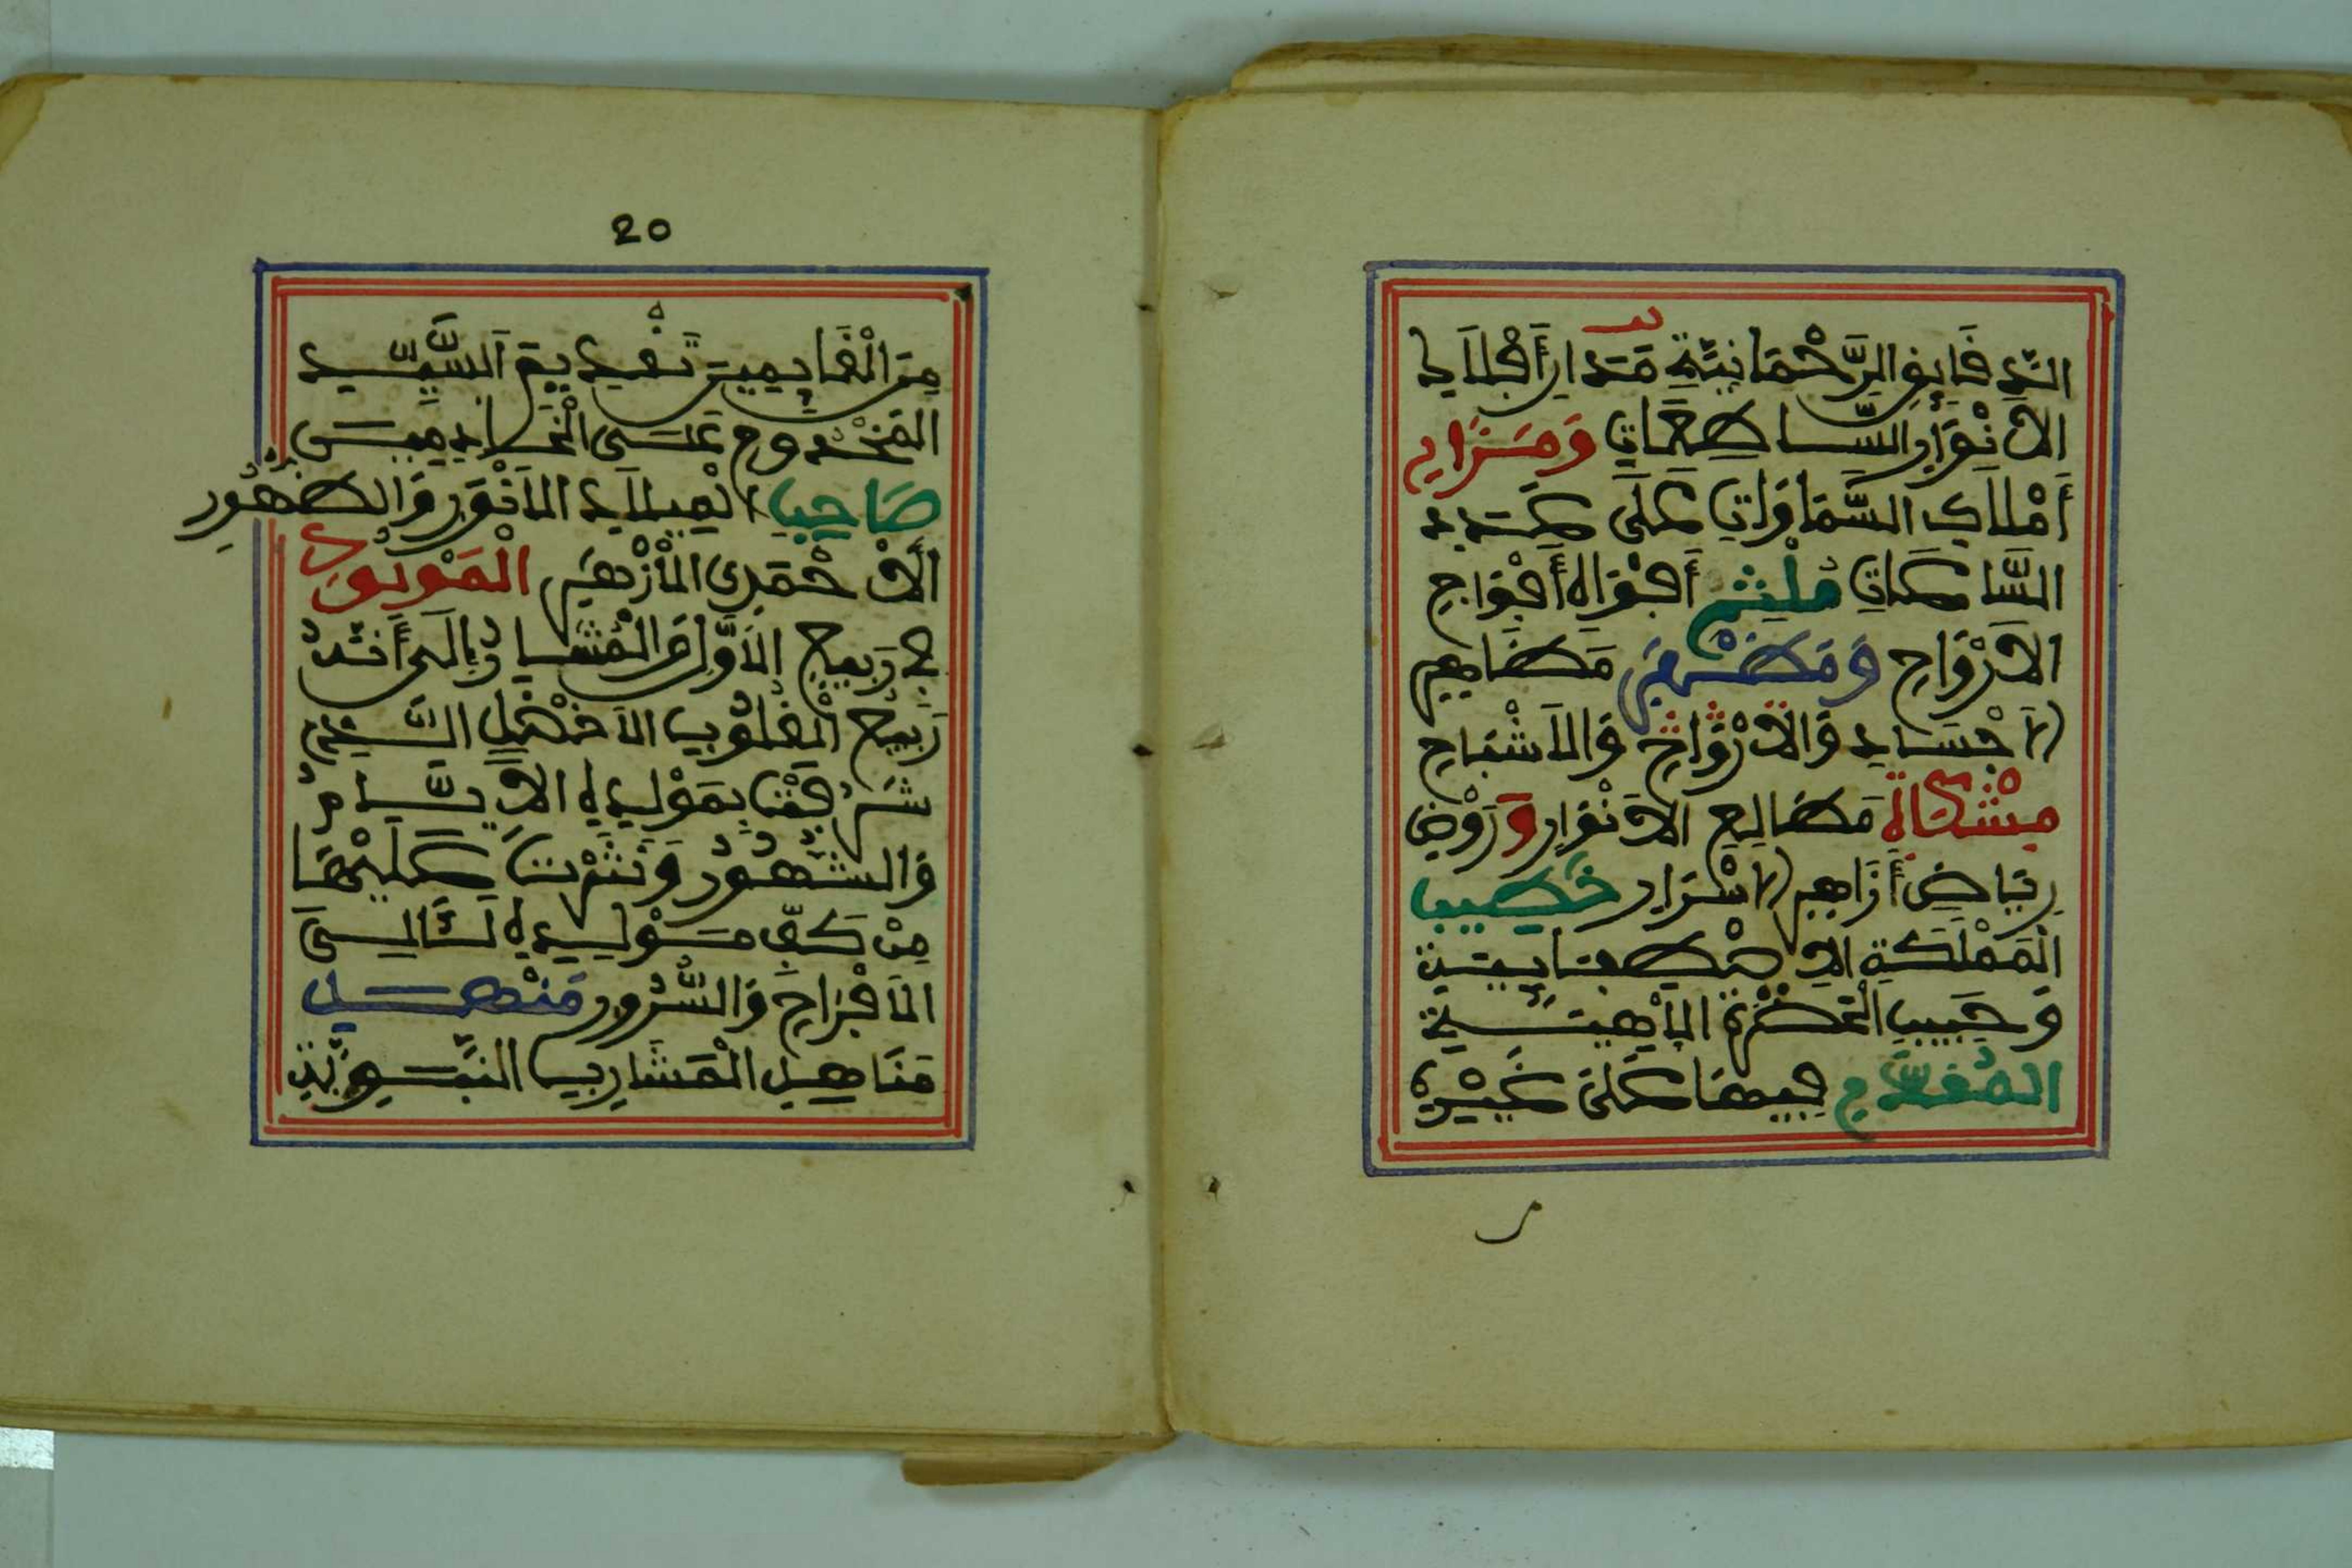 الدَّقَايِقِ الرَّحْمَانِيَّةِ مَدَارِ أَفْلَاكِ
الْأَنْوَارِ السَّاطِعَاتِ وَمَرْكَزِ
أَمْلَاكِ السَّمَاوَاتِ عَلَى عَدَدِ
السَّاعَاتِ مَلْثَمِ أَفْوَاهِ أَفْوَاجِ
الْأَرْوَاحِ وَمَظْهَرِ مَظَاهِرِ
الْأَجْسَادِ وَالْأَرْوَاحِ وَالْأَشْبَاحِ
مِشْكَاةِ مَطَالِعِ الْأَنْوَارِ وَرَوْضِ
رِيَاضِ أَزَاهِرِ الْأَسْرَارِ خَطِيبِ
الْمَمْلَكَةِ الْاِصْطِفَايِيَّةِ
وَحَبِيبِ الْحَضْرَةِ الْإِلَهِيَّةِ
الْمُقَدَّمِ فِيهَا عَلَى غَيْرِهِ
20
مِنَ الْقَايِمِينَ تَقْدِيمَ السَّيِّدِ
الْمَخْدُومِ عَلَى الْخَادِمِينَ
صَاحِبِ الْمِيلَادِ الْأَنْوَرِ وَالظُّهُورِ
الْأَحْمَدِيِّ الْأَزْهَرِ الْمَوْلُودِ
فِي رَبِيعِ الْأَوَّلِ وَالْمُشَارُ إِلَى أَنَّهُ
رَبِيعُ الْقُلُوبِ الْأَفْضَلِ الَّذِي
شَرُفَتْ بِمَوْلِدِهِ الْأَيَّامُ
وَالشُّهُورُ وَنُثِرَتْ عَلَيْهَا
مِنْ كَفِّ مَوْلِدِهِ لَئَالِي
الْأَفْرَاحِ وَالسُّرُورِ مَنْهَلِ
مَنَاهِلِ الْمَشَارِبِ النَّبَوِيَّةِ